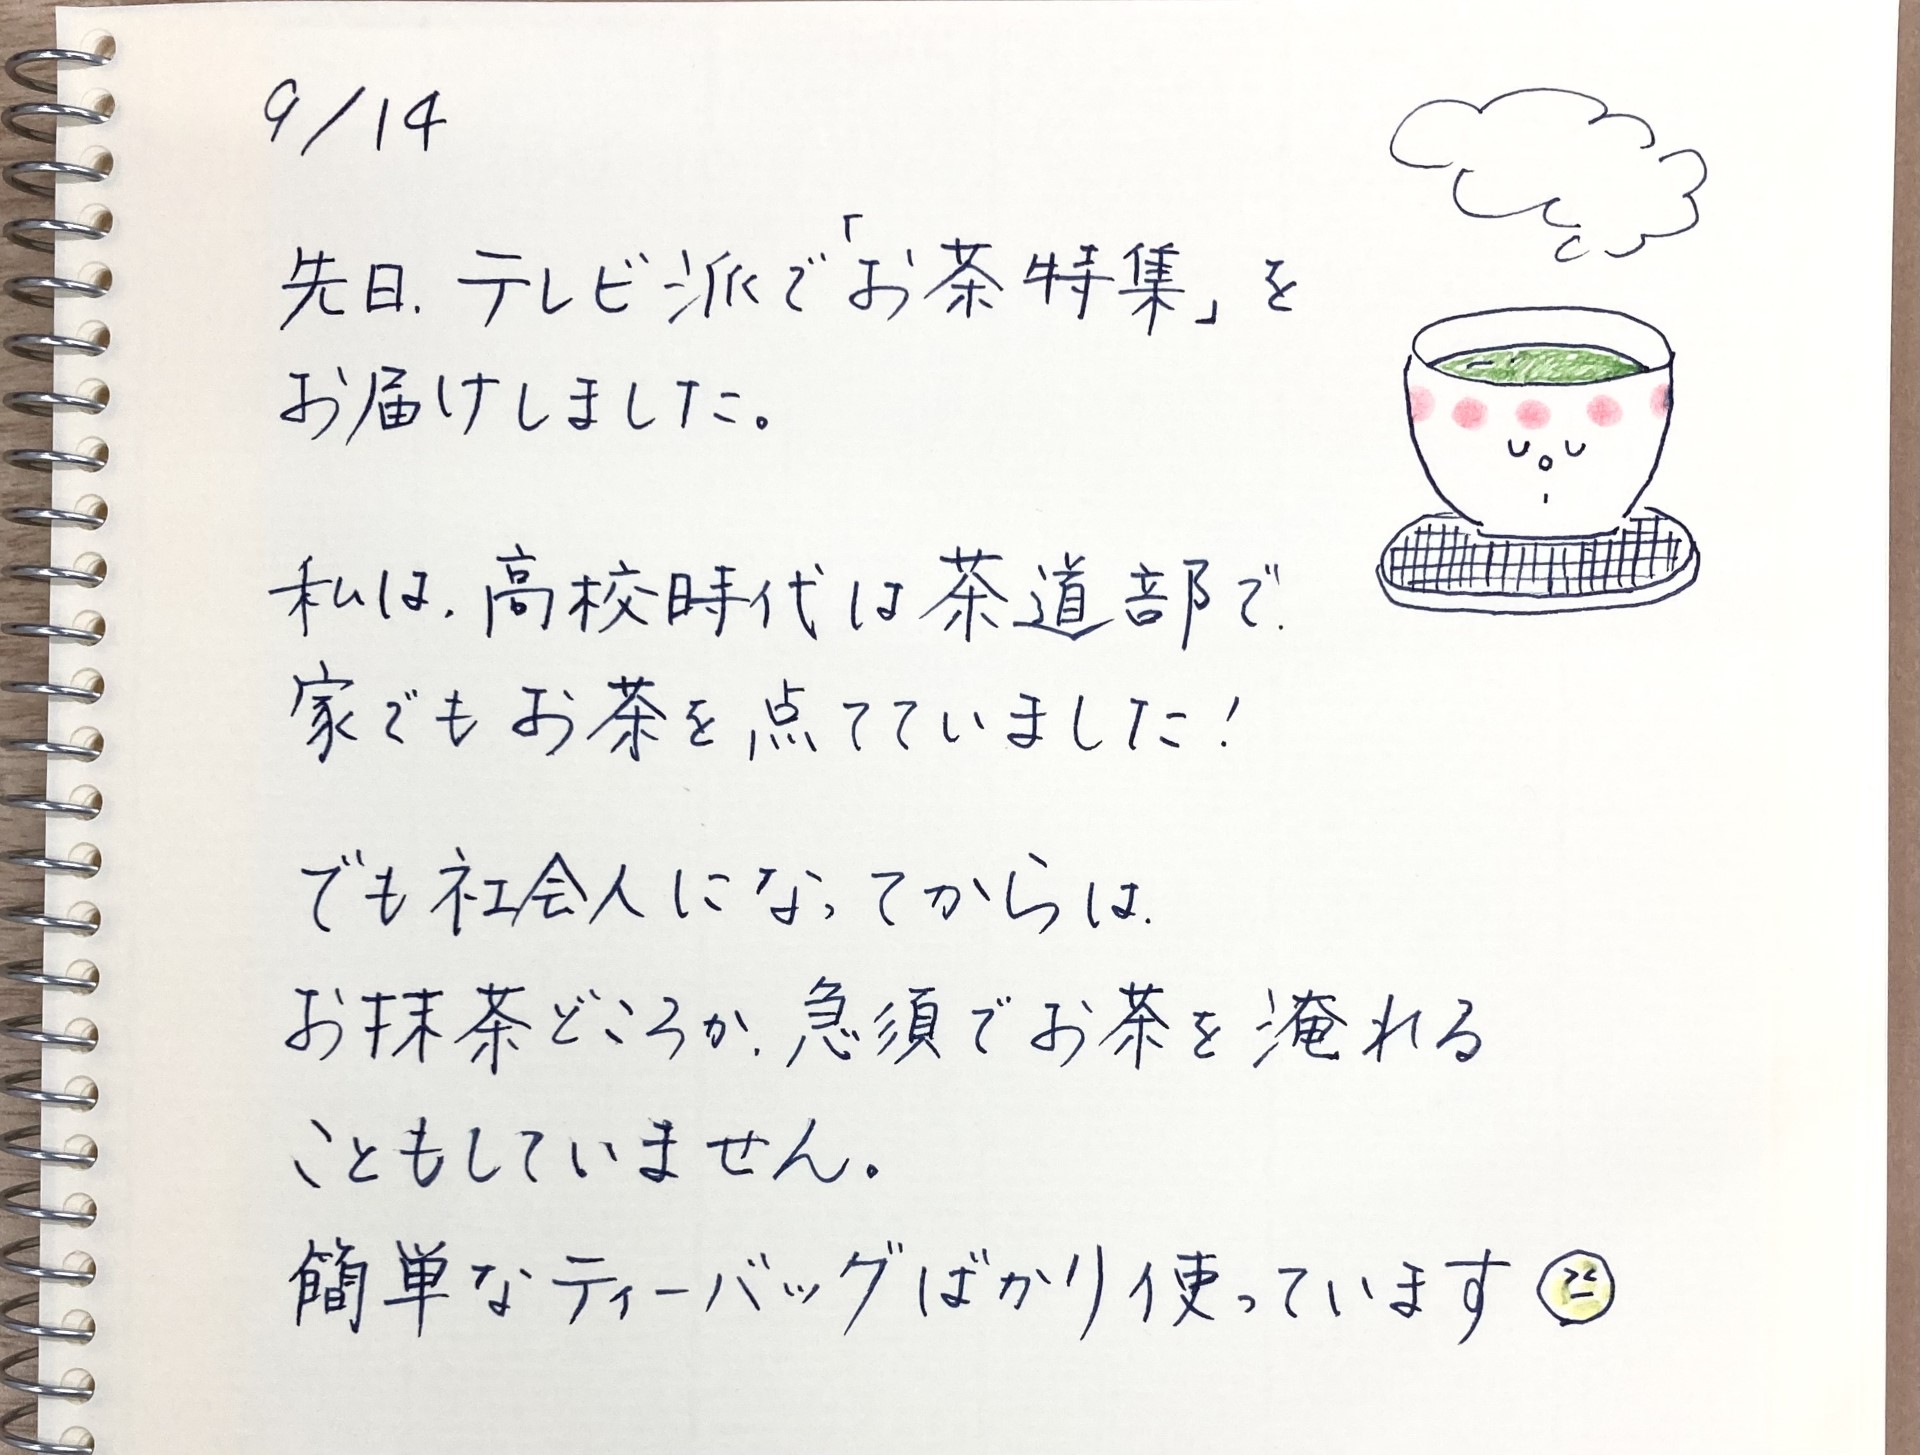 9/14
先日、テレビ派で「お茶特集」を
お届けしました。
私は、高校時代は茶道部で、
家でもお茶を点てていました！
でも社会人になってからは、
お抹茶どころか、急須でお茶を淹れる
こともしていません。
簡単なティーバッグばかり使っています